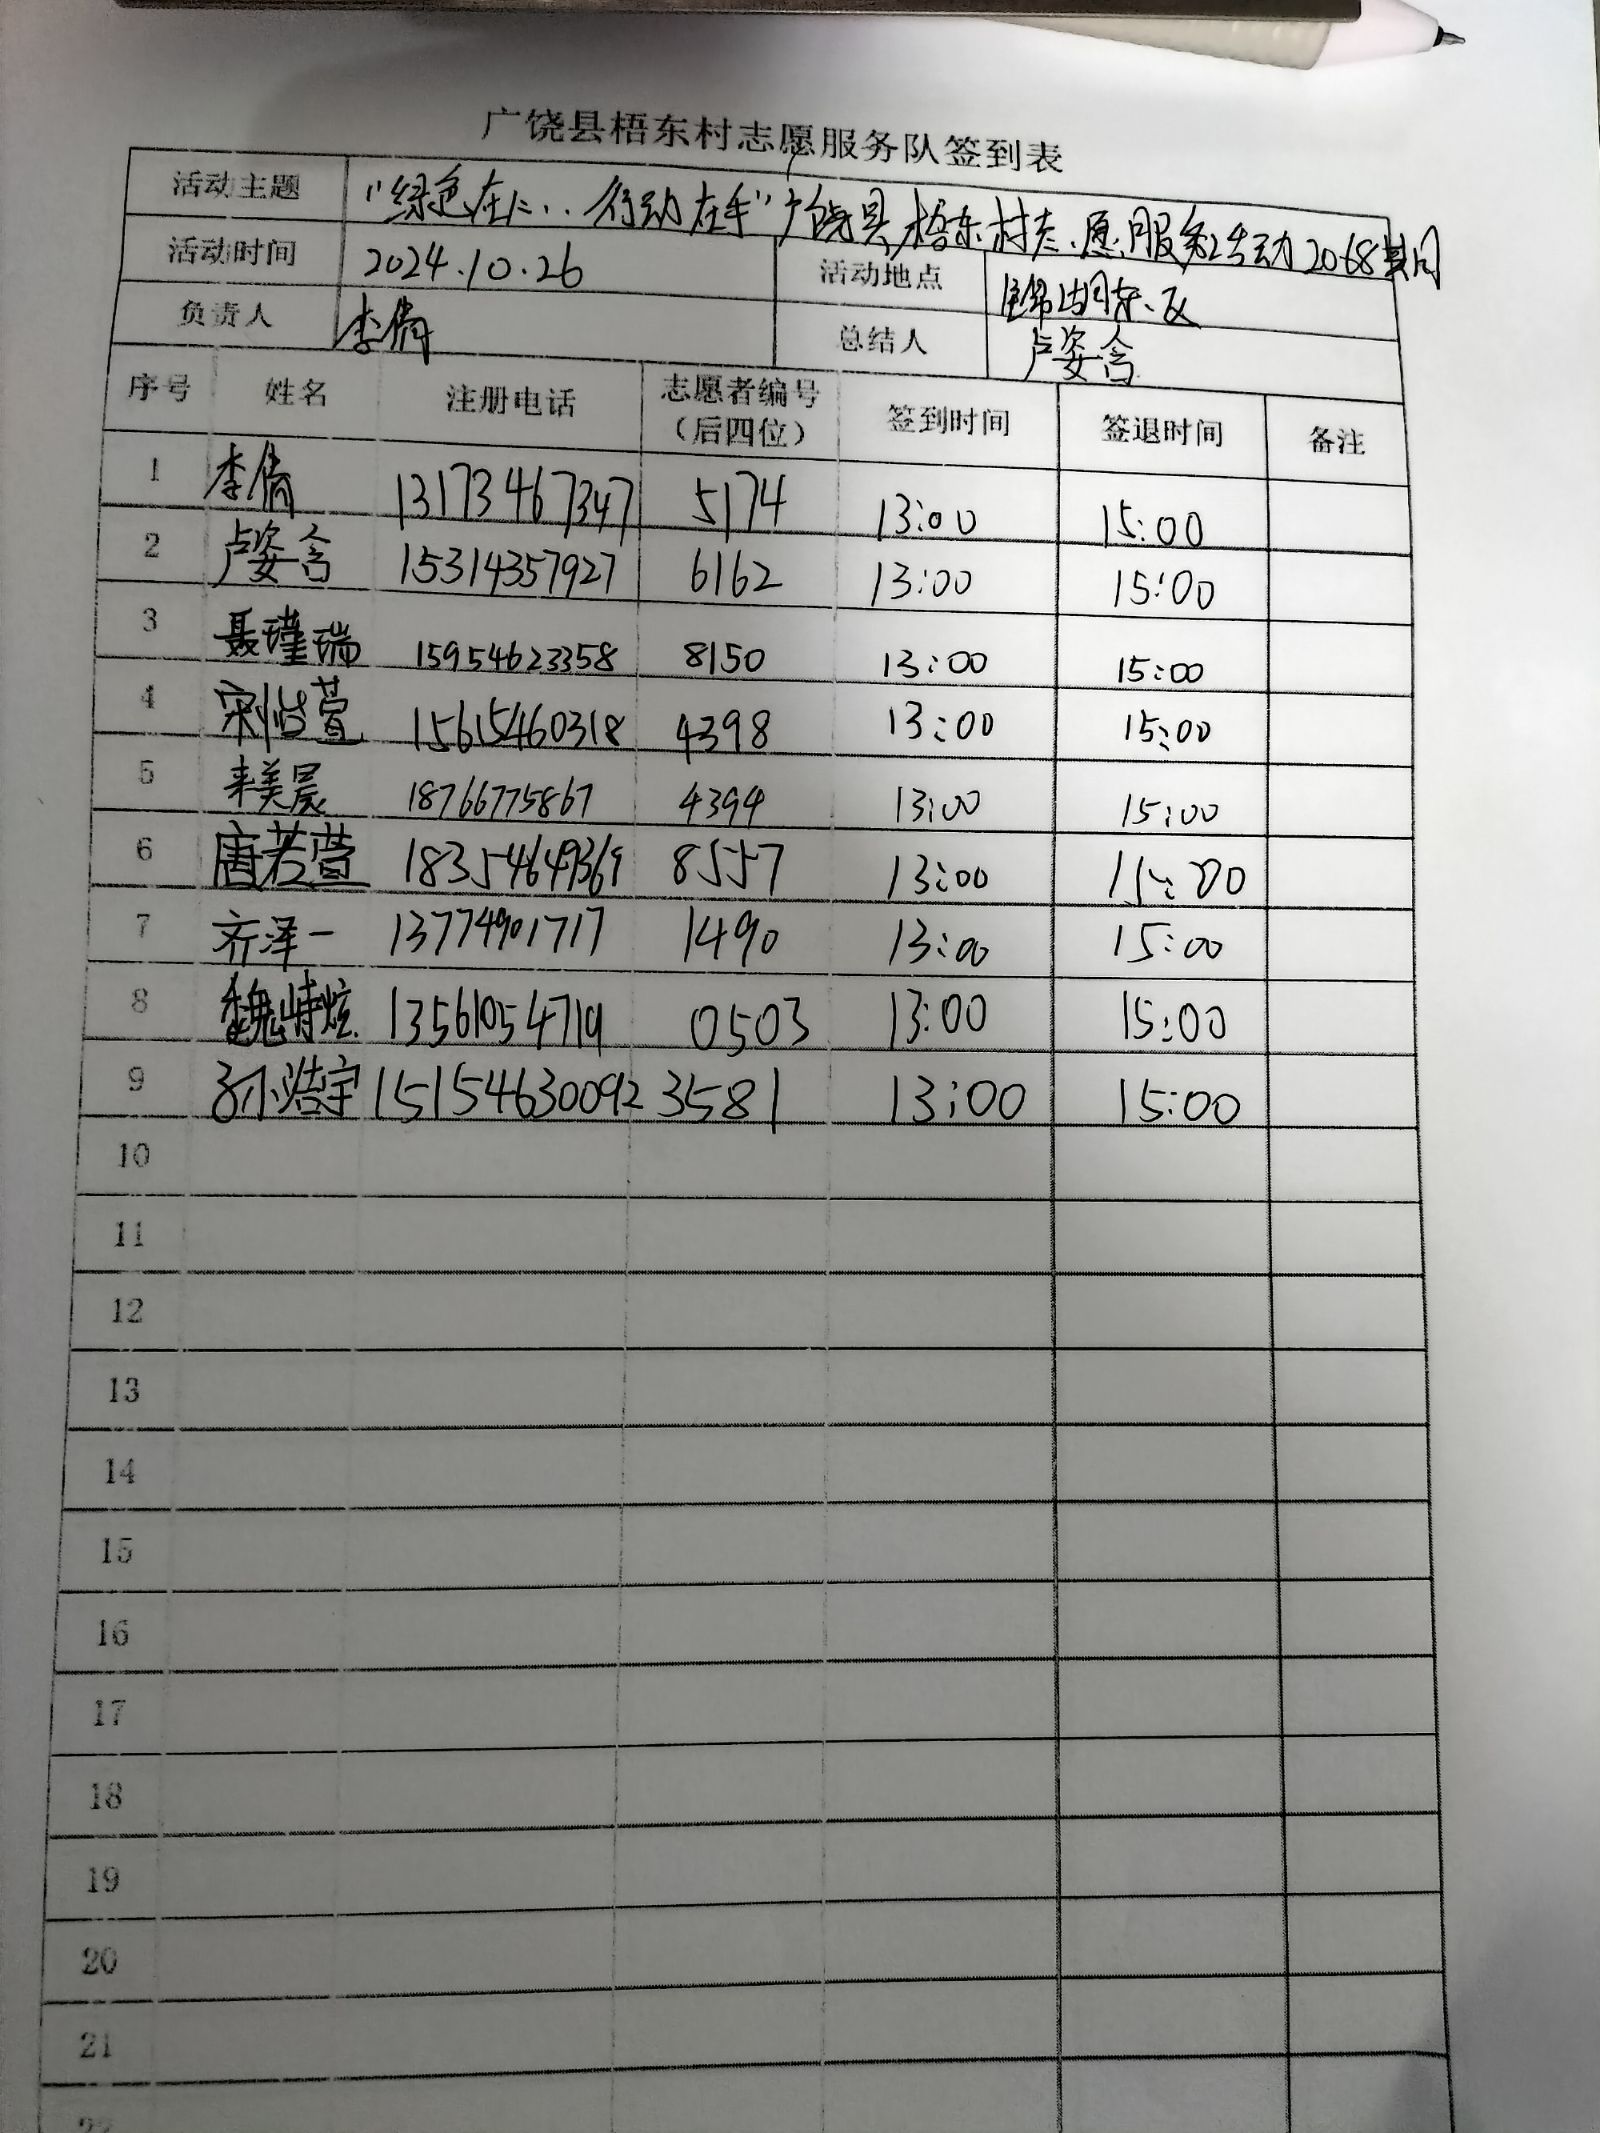 广饶县梧东村志愿服务队签到表
活动主题 "绿色在心,行动在手"广饶县梧东村志愿服务活动2068期
活动时间 2024.10.26 活动地点 锦湖东区
负责人 李倩 总结人 卢姿含
序号 姓名 注册电话 志愿者编号(后四位) 签到时间 签退时间 备注
1 李倩 13173467347 5174 13:00 15:00
2 卢姿含 15314357927 6162 13:00 15:00
3 聂瑾瑞 15954623358 8150 13:00 15:00
4 宋怡萱 15615460318 4398 13:00 15:00
5 来美晨 18766775867 4394 13:00 15:00
6 唐若萱 18354649369 8557 13:00 15:00
7 齐泽一 13774901717 1490 13:00 15:00
8 魏炫 13561054719 0503 13:00 15:00
9 孙浩宇 15154630092 3581 13:00 15:00
10
11
12
13
14
15
16
17
18
19
20
21